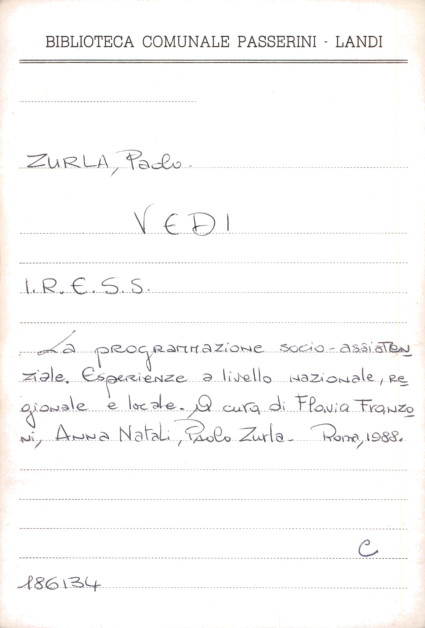 BIBLIOTECA COMUNALE PASSERINI - LANDI
ZURLA, Paolo.
VEDI
I.R.E.S.S.
La programmazione socio-assisten
ziale. Esperienze a livello nazionale, re
gionale e locale. A cura di Flavia Franzo
ni, Anna Natali, Paolo Zurla. Roma, 1988.
C
186134